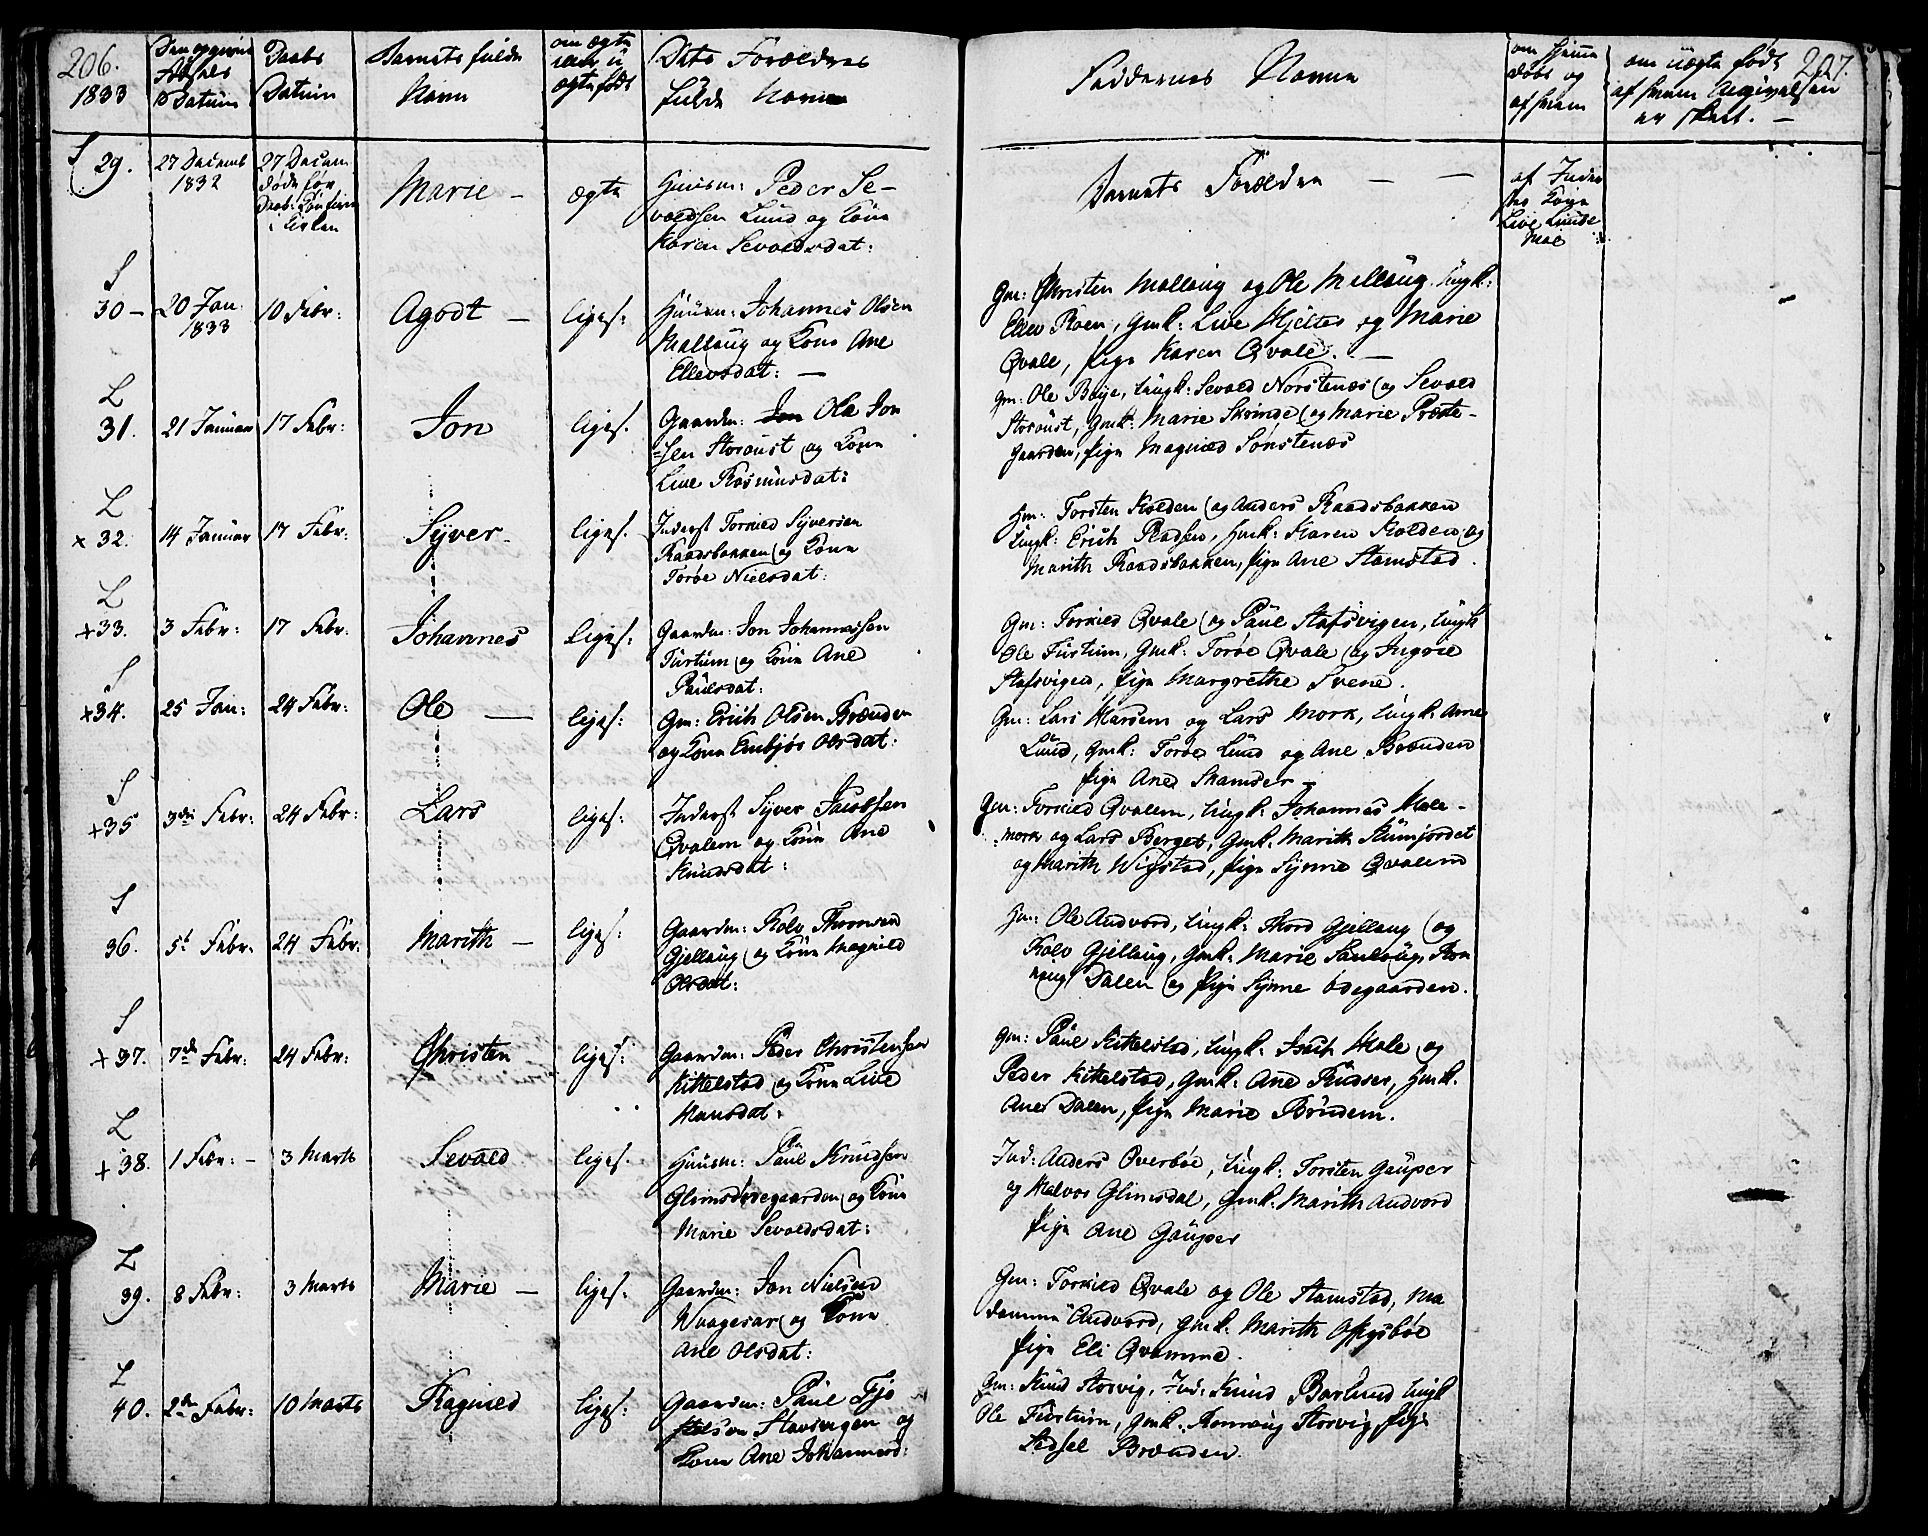 206.
1833
Den opgivne
Fødsels
Datum
Daabs
Datum
Barnets fulde
Navn
om ægte
eller u
ægte født
Dets Forældres
fulde Navne
Faddernes Navne
om hjemme
døbt og
af hvem
om uægte født
af hvem Angivelsen
er skeet. —
207.
S
29.
27 Decemb
1832
27 Decem
døde før
Daab: Confirm
i Kirken
Marie —
ægte
Huusm: Peder Se-
valdsen Lund og Kone
Karen Sevaldsdat:
Barnets Forældre — —
af Inder
sts Kone
Live Lunde
moe
S
30 —
20 Jan:
1833
10 Febr:
Agodt —
liges:
Huusm: Johannes Olsen
Mallaug og Kone Ane
Ellevsdat: —
Gm: Christen Mallaug og Ole Mellaug, Ungk:
Ellev Roen, Gmk: Live Hjelter og Marie
Qvale, Pige Karen Qvale. —
L
31.
21 Januar
17 Febr:
Jon
liges.
Gaardm: Jon Ole Jon
sen Storoust og Kone
Live Rasmusdat:
Gm: Ole Bøye, Ungk: Sevald Norstenæs og Sevald
Storoust, Gmk: Marie Skrinde og Marie Præste-
gaarden, Pige Magnild Sønstenæs
L
x 32.
14 Januar
17 Febr:
Syver
liges.
Inderst Torkild Syversen
Raadsbakken og Kone
Torøe Nielsdat:
Hm: Torsten Kolden og Anders Raadsbakken
Ungk: Erich Rødsen, Hmk: Karen Kolden og
Marith Raadsbakken, Pige Ane Stamstad.
L
+33.
3 Febr:
17 Febr:
Johannes
liges:
Gaardm: Jon Johannessen
Furtum og Kone Ane
Paulsdat:
Gm: Torkild Qvale og Paul Stafsvigen, Ungk
Ole Furtum, Gmk: Torøe Qvale og Ingrie
Stafsvigen, Pige Margrethe Svene.
S
+34.
25 Jan:
24 Febr:
Ole —
liges:
Gm: Erich Olsen Brænden
og Kone Embjør Olsdat:
Gm: Lars Harsem og Lars Mork, Ungk: Arne
Lund, Gmk: Torøe Lund og Ane Brænden
Pige Ane Skamser —
S
+35
3die Febr:
24 Febr:
Lars
liges:
Inderst Syver Jacobsen
Qvalem og Kone Ane
Knudsdat:
Gm: Torkild Qvalem, Ungk: Johannes Male-
mork og Lars Berget, Gmk: Marith Kumjordet
og Marith Wigstad, Pige Synne Qvalem
S
36.
5t Febr:
24 Febr:
Marith —
liges:
Gaardm: Rolv Thomsen
Gjellaug og Kone Magnild
Olsdat:
Hm: Ole Andvord, Ungk: Thord Gjellaug og
Rolv Gjellaug, Gmk: Marie Sanlaug, Ron
naug Dalen og Pige Synne Ødegaarden.
S
+37.
7de Febr:
24 Febr:
Christen
liges:
Gaardm: Peder Christensen
Kittelstad og Kone Live
Hansdat:
Gm: Paul Kittelstad, Ungk: Isach Hole og
Peder Kittelstad, Gmk: Ane Rudser, Hmk.
Ane Dalen, Pige Marie Brudem.
L
+38.
1 Febr: —
3 Marts
Sevald
liges.
Huusm: Paul Knudsen
Glimsdødegaarden og Kone
Marie Sevaldsdat:
Ind: Anders Øverbøe, Ungk: Torsten Gauper
og Halvor Glimsdal, Gmk: Marith Andvord
Pige Ane Gauper
L
39.
8 Febr:
3 Marts
Marie —
liges.
Gaardm: Jon Nielsen
Waagesar og Kone
Ane Olsdat:
Gm: Torkild Qvale og Ole Stamstad, Ma
damme Andvord, Gmk. Marith Offigsbøe
Pige Eli Qvamme.
L
40.
2de Febr:
10 Marts
Ragnild
liges:
Gaardm: Paul Tjo
stelsen Stavsvigen og
Kone Ane Johannesd:
Gm: Knud Storvig, Ind: Knud Barlund Ungk
Ole Furtum, Gmk. Ronnaug Storvig, Pige
Sidsel Brænden.